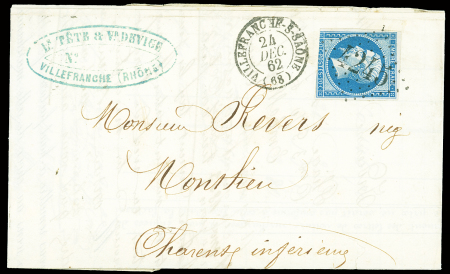 LA TÊTE & VADEVICE
N°
VILLEFRANCHE (RHÔNE)
VILLEFRANCHE-S-SAÔNE
24
DÉC.
62
(68)
4245
Monsieur Revers nég
Monthieu
Charente inférieure